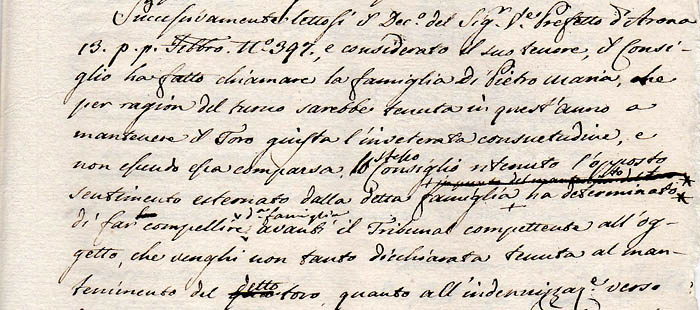 Successivamente lettosi il Dec.º del Sig.r V.e Prefetto d'Arona
13. p. p. Febbro. N.º 397., e considerato il suo tenore, il Consi-
glio ha fatto chiamare la famiglia di Pietro Maria, che
per ragion del turno sarebbe tenuta in quest'anno a
mantenere il Toro giusta l'inveterata consuetudine, e
non essendo essa comparsa, lo stesso Consiglio ritenuto l'opposto
sentimento esternato dalla detta famiglia ha determinato
di far compellire d.ta famiglia avanti il Tribunal competente all'og-
getto, che venghi non tanto dichiarata tenuta al man-
tenimento del detto toro, quanto all'indennizzaz.e verso